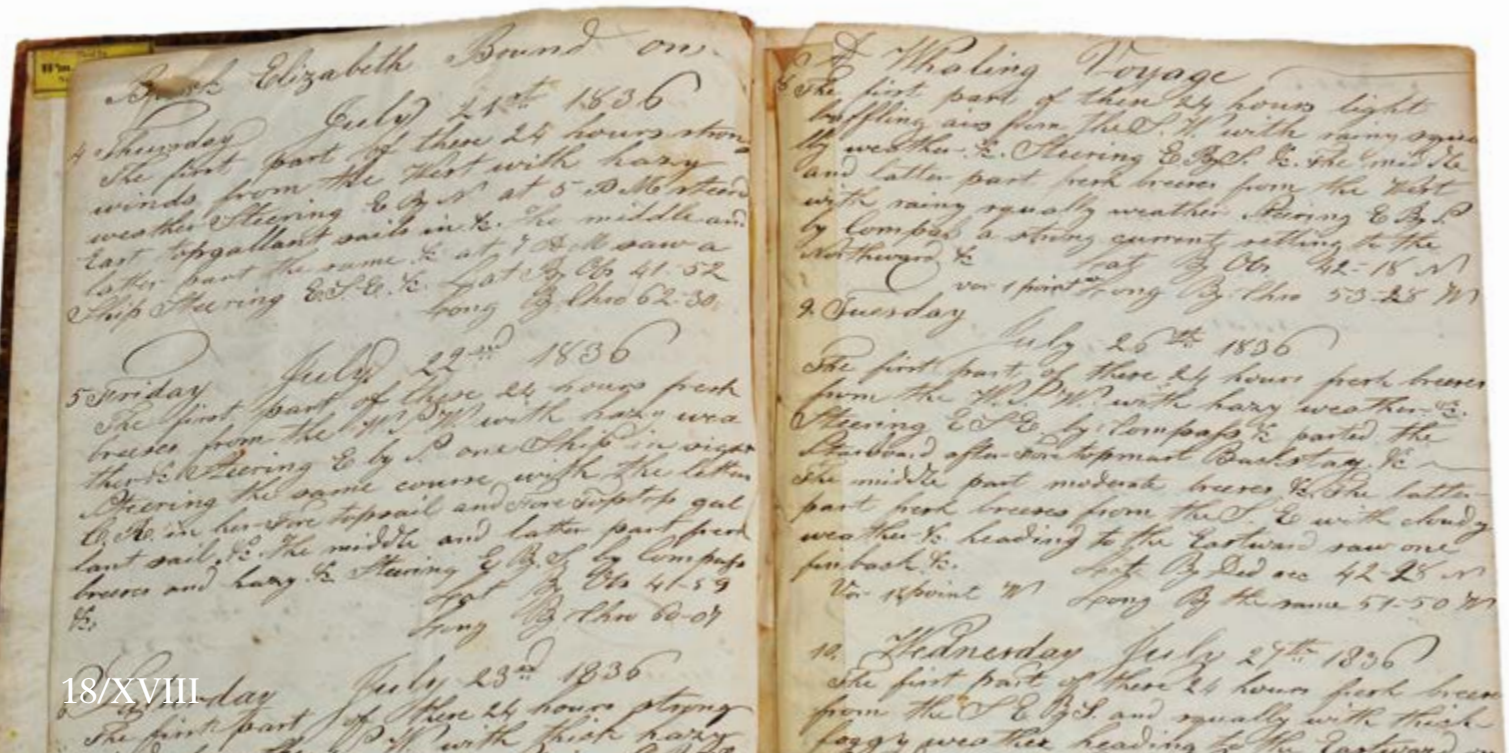 Elizabeth Bound on
July 21st 1836
4 Thursday
The first part of these 24 hours stron
winds from the West with hazy
weather Steering E By N at 5 P M
topgallant sails in &c. The middle and
latter part the same &c at 7 A M saw a
Ship Steering E.S.E. &c. Lat By Obs 41-52
Long By Chro 62-30
July 22nd 1836
5 Friday
The first part of these 24 hours fresh
breezes from the W.S.W. with hazy wea
ther &c Steering E by S one Ship in
Steering the same course with the letters
in her Fore topsail and Fore gal
lant sail &c. The middle and latter part fresh
breezes and hazy &c Steering E By S by Compass
&c. Lat By Obs 41-59
Long By Chro 60-07
July 23rd 1836
The first part of these 24 hours strong
with thick hazy
18/XVIII
A Whaling Voyage
8 The first part of these 24 hours light
baffling airs from the S. W. with rainy squa
lly weather &c. Steering E By S. &c. The middle
and latter part fresh breezes from the West
with rainy squally weather Steering E By S
by Compass a strong current setting to the
Northward &c Lat By Obs 42-18 N
var 1 point Long By Chro 53-28 W
9. Tuesday
July 26th 1836
The first part of these 24 hours fresh breezes
from the W.S.W. with hazy weather &c.
Steering ESE by Compass &c parted the
Starboard after Fore topmast Backstay. &c
The middle part moderate breezes &c. The latter
part fresh breezes from the S. E with cloudy
weather &c heading to the Eastward saw one
finback &c. Lat By Ded rec 42-28 N
Var point W Long By the same 51-50 W
10. Wednesday July 27th 1836
The first part of these 24 hours fresh breeze
from the S E By S. and squally with thick
foggy weather heading to the